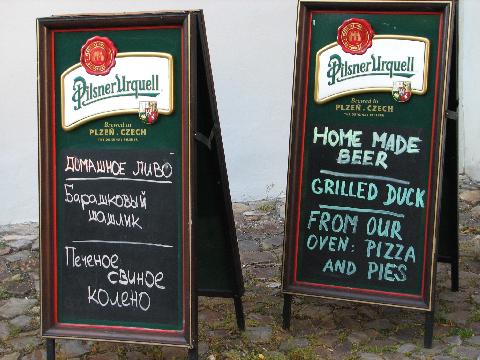 Pilsner Urquell
Brewed in
PLZEŇ. CZECH
THE ORIGINAL PILSNER
ДОМАШНОЕ ПИВО
Барашковый
шашлик
Печеное
свиное
колено
Pilsner Urquell
Brewed in
PLZEŇ. CZECH
THE ORIGINAL PILSNER
HOME MADE
BEER
GRILLED DUCK
FROM OUR
OVEN: PIZZA
AND PIES